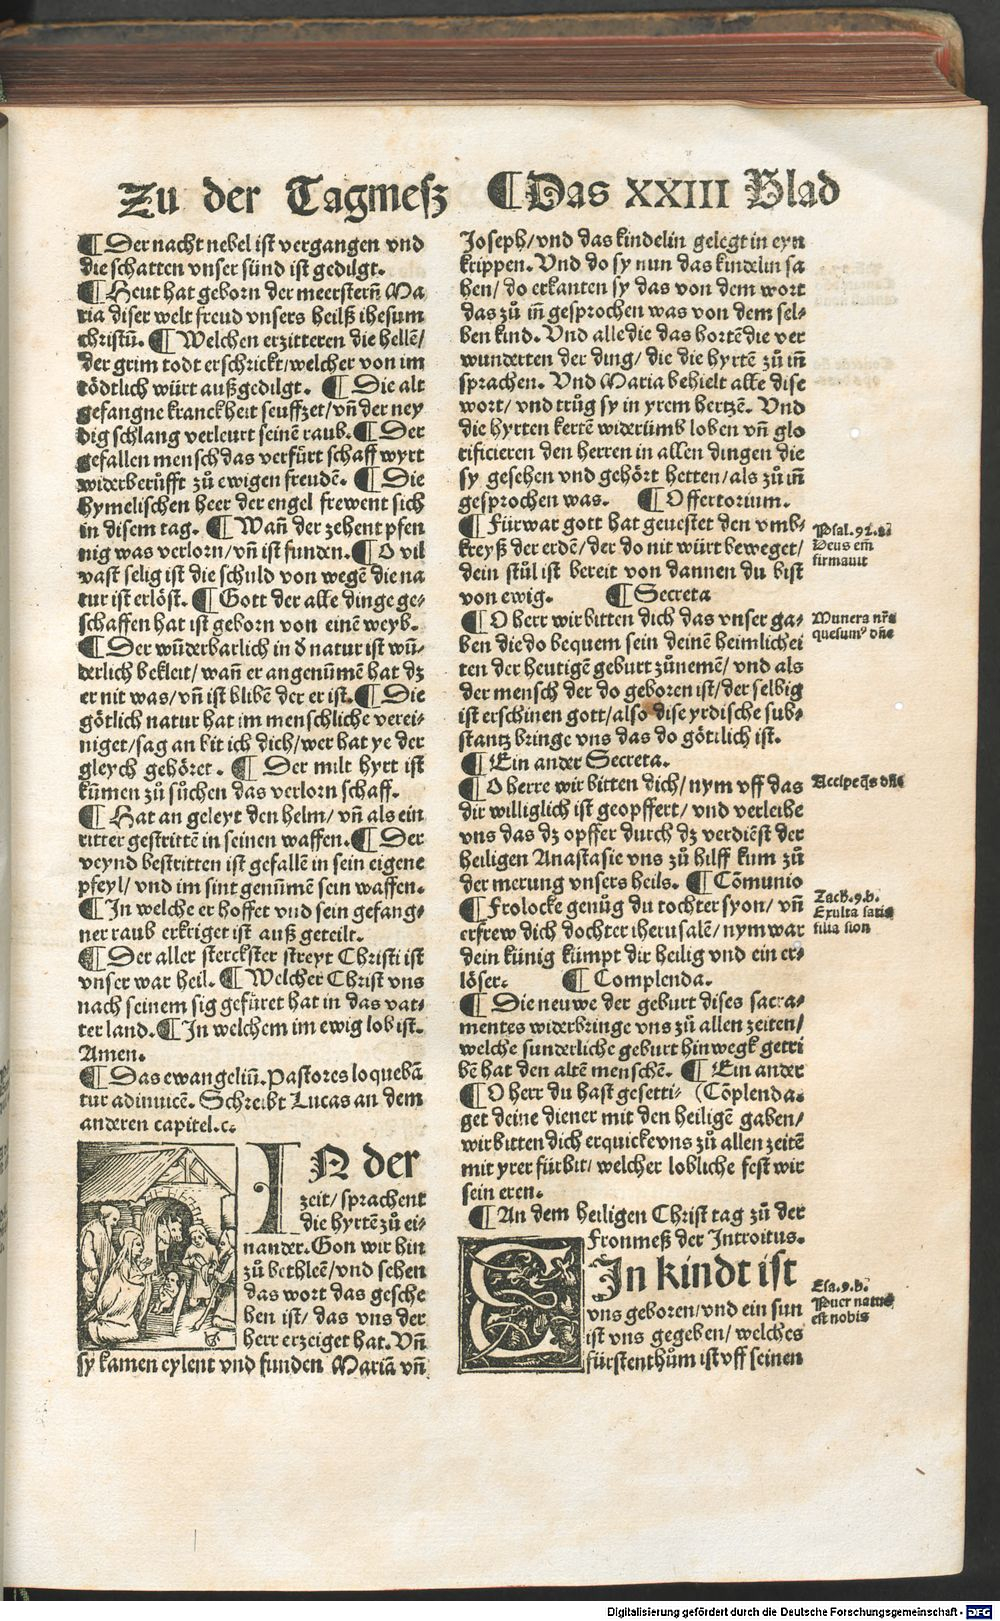 Zu der Tagmesz ¶ Das XXIII Blad
¶ Der nacht nebel ist vergangen vnd
die schatten vnser sünd ist gedilgt.
¶ Heut hat geborn der meersterñ Ma
ria diser welt freud vnsers heilß ihesum
christū. ¶ Welchen erzitteren die hellē/
der grim todt erschrickt/welcher von im
tödtlich würt außgedilgt. ¶ Die alt
gefangne kranckheit seuffzet/vñ der ney
dig schlang verleurt seinē raub. ¶ Der
gefallen mensch das verfürt schaff wyrt
widerberůfft zů ewigen freudē. ¶ Die
hymelischen heer der engel frewent sich
in disem tag. ¶ Wañ der zehent pfen
nig was verlorn/vñ ist funden. ¶ O vil
vast selig ist die schuld von wegē die na
tur ist erlöst. ¶ Gott der alle dinge ge-
schaffen hat ist geborn von einē weyb.
¶ Der wūderbarlich in ð natur ist wū-
derlich bekleit/wañ er angenūmē hat dz
er nit was/vñ ist blibē der er ist. ¶ Die
götlich natur hat im menschliche verei-
niget/sag an bit ich dich/wer hat ye der
gleych gehöret. ¶ Der milt hyrt ist
kūmen zů sůchen das verlorn schaff.
¶ Hat an geleyt den helm/vñ als ein
ritter gestrittē in seinen waffen. ¶ Der
veynd bestritten ist gefallē in sein eigene
pfeyl/vnd im sint genūmē sein waffen.
¶ In welche er hoffet vnd sein gefang-
ner raub erkriget ist auß geteilt.
¶ Der aller sterckster streyt Christi ist
vnser war heil. ¶ Welcher Christ vns
nach seinem sig gefüret hat in das vat-
ter land. ¶ In welchem im ewig lob ist.
Amen.
¶ Das ewangeliū. Pastores loquebā
tur adinuicē. Schreibt Lucas an dem
anderen capitel.c.
IN der
zeit/sprachent
die hyrtē zů ei-
nander. Gon wir hin
zů bethleē/vnd sehen
das wort das gesche
hen ist/das vns der
herr erzeiget hat. Vñ
sy kamen eylent vnd funden Mariā vñ
Joseph/vnd das kindelin gelegt in eyn
krippen. Vnd do sy nun das kindelin sa
hen/do erkanten sy das von dem wort
das zů iñ gesprochen was von dem sel-
ben kind. Vnd alle die das hortē die ver
wunderten der ding/die die hyrtē zů iñ
sprachen. Vnd Maria behielt alle dise
wort/vnd trůg sy in yrem hertzē. Vnd
die hyrten kertē widerümb loben vñ glo
rificieren den herren in allen dingen die
sy gesehen vnd gehört hetten/als zů iñ
gesprochen was. ¶ Offertorium.
¶ Fürwar gott hat geuestet den vmb-
kreyß der erdē/der do nit würt beweget/
dein stůl ist bereit von dannen du bist
von ewig. ¶ Secreta
¶ O herr wir bitten dich das vnser ga-
ben die do bequem sein deinē heimlichei
ten der heutigen geburt zůnemē/vnd als
der mensch der do geboren ist/der selbig
ist erschinen gott/also dise yrdische sub-
stantz bringe vns das do göttlich ist.
¶ Ein ander Secreta.
¶ O herre wir bitten dich/nym vff das
dir williglich ist geopffert/vnd verleihe
vns das dz opffer durch dz verdiēst der
heiligen Anastasie vns zů hilff kum zů
der merung vnsers heils. ¶ Cōmunio
¶ Frolocke genůg du tochter syon/vñ
erfrew dich dochter iherusalē/nym war
dein künig kümpt dir heilig vnd ein er-
löser. ¶ Complenda.
¶ Die neuwe der geburt dises sacra-
mentes widerbringe vns zů allen zeiten/
welche sunderliche geburt hinwegk getri
bē hat den altē menschē. ¶ Ein ander
¶ O herr du hast gesetti- (Cōplenda.
get deine diener mit den heiligē gaben/
wir bitten dich erquicke vns zů allen zeitē
mit yrer fürbit/welcher lobliche fest wir
sein eren.
¶ An dem heiligen Christ tag zů der
Fronmeß der Introitus.
EIn kindt ist
vns geboren/vnd ein sun
ist vns gegeben/welches
fürstenthům ist vff seinen
Psal. 92. a
Deus em̄
firmauit
Munera nr̄a
quesumꝰ dñe
Accipe q̄s dñe
Zach. 9. b.
Exulta satis
filia sion
Esa. 9. b.
Puer natus
est nobis
Digitalisierung gefördert durch die Deutsche Forschungsgemeinschaft - DFG